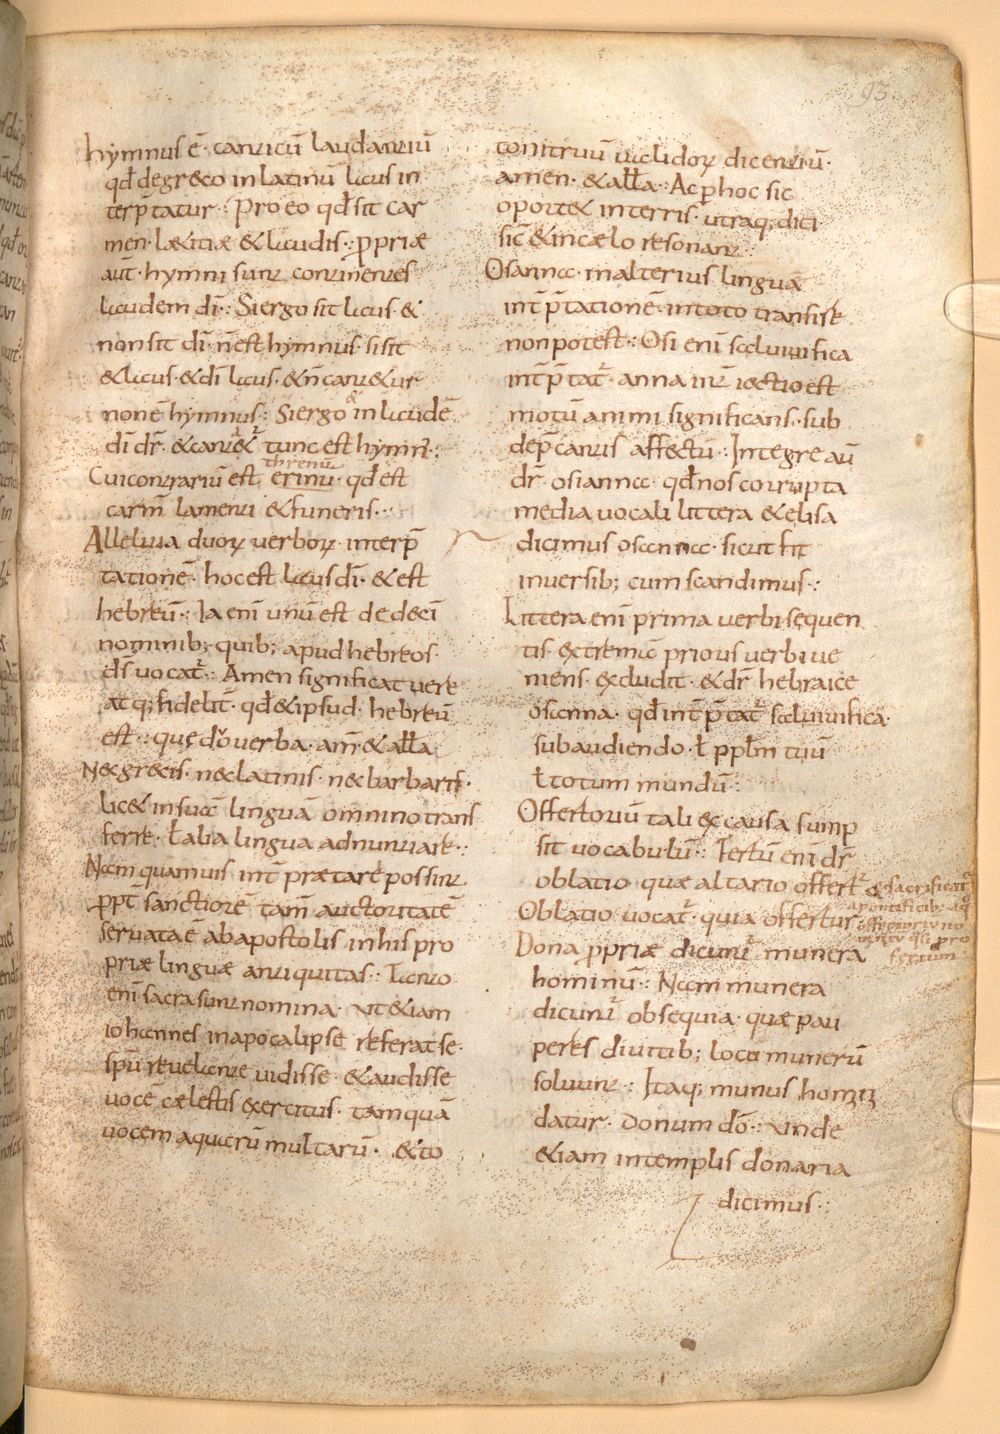 93
hymnus ē· canticū laudantiū
qđ de greco in latinū laus in
terp̄tatur·: Pro eo qđ sit car
men· lætitiæ & laudis·: ꝓpriæ
aut̄· hymni sunt continentes
laudem dī·: Si ergo sit laus· &
non sit dī· ñ est hymnus· si sit
& laus· & dī laus· & ñ cantetur
non ē hymnus·: Si ergo & in laudē
dī dr̄· & cantat̉ tunc est hymn̄·:
threnū
Cui contrariū est erinū· qđ est
carm̄ lamenti & funeris·:
Alleluia duoꝝ verboꝝ· interp̄
tationē· hoc est laus dī· & est
hebreū·: Ia enī unū est de decī
nominib; quib; apud hebreos·
ds̄ vocat̉·: Amen significat vere
atq; fidelit̄· qđ & ipsud· hebreū
est·: quę duo verba· am̄· & alła
Nec grecis· nec latinis· nec barbaris·
licet in suā linguā omnino trans
ferre· ł alia lingua adnuntiare·:
Nam quamvis int̄prætare possint
ꝓpt̄ sanctiorē tam̄ auctoritatē
servata ē ab apostolis in his pro
priæ linguæ antiquitas·: Tanto
enī sacra sunt nomina· ut etiam
iohannes in apocalipse referat se·
spū revelante vidisse· & audisse
vocē cælestis exercitus· tamquā
vocem aquarū multarū· & to
tonitruū validoꝝ dicentiū·
amen· & alła·: Ac ꝑ hoc sic
oportet in terris· utraq; dici
sic̄ & in cælo resonant·:
Osanna· in alterius linguā
int̄p̄tationē· in toto transire
non potest·: Osi enī salvifica
int̄p̄tat̉· anna int̄iectio est
motū animi significans· sub
dep̄cantis affectū·: Integre aū
dr̄· osianna· qđ nos corrupta
media vocali littera & elisa
dicimus osanna· sicut fit
in versib; cum scandimus·:
Littera enī prima verbi sequen
tis· extremā prioris verbi ve
niens· excludit· & dr̄ hebraice
osanna· qđ int̄p̄tat̉ salvifica·
subaudiendo· ł ppłm tuū
ł totum mundū·:
Offertoriū tali ex causa sump
sit vocabulū·: Fertū enī dr̄
oblatio· quæ altario offert̉ & sacrificat̉
a pontificib; a q̊
Oblatio vocat̉· quia offertur· offertoriū no
minatū q̄si pro
fertum
Dona ꝓpriæ dicunt̉ munera
hominū·: Nam munera
dicunt̉ obsequia· quæ pau
peres divitib; loco munerū
solvunt·: Itaq; munus homīī
datur· donum dō·: unde
etiam in templis donaria
dicimus·: